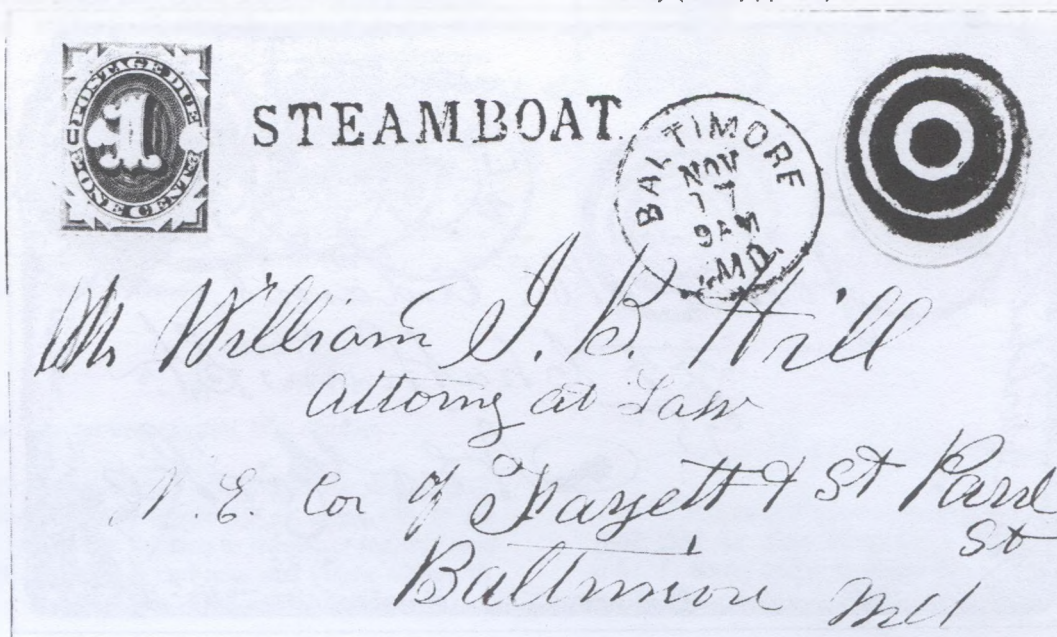 POSTAGE DUE
1
ONE CENT
STEAMBOAT
BALTIMORE
NOV
17
9AM
MD.
Mr William I. B. Hill
Attorny at Law
N. E. Cor of Fayett & St Paul
St
Baltimore Md